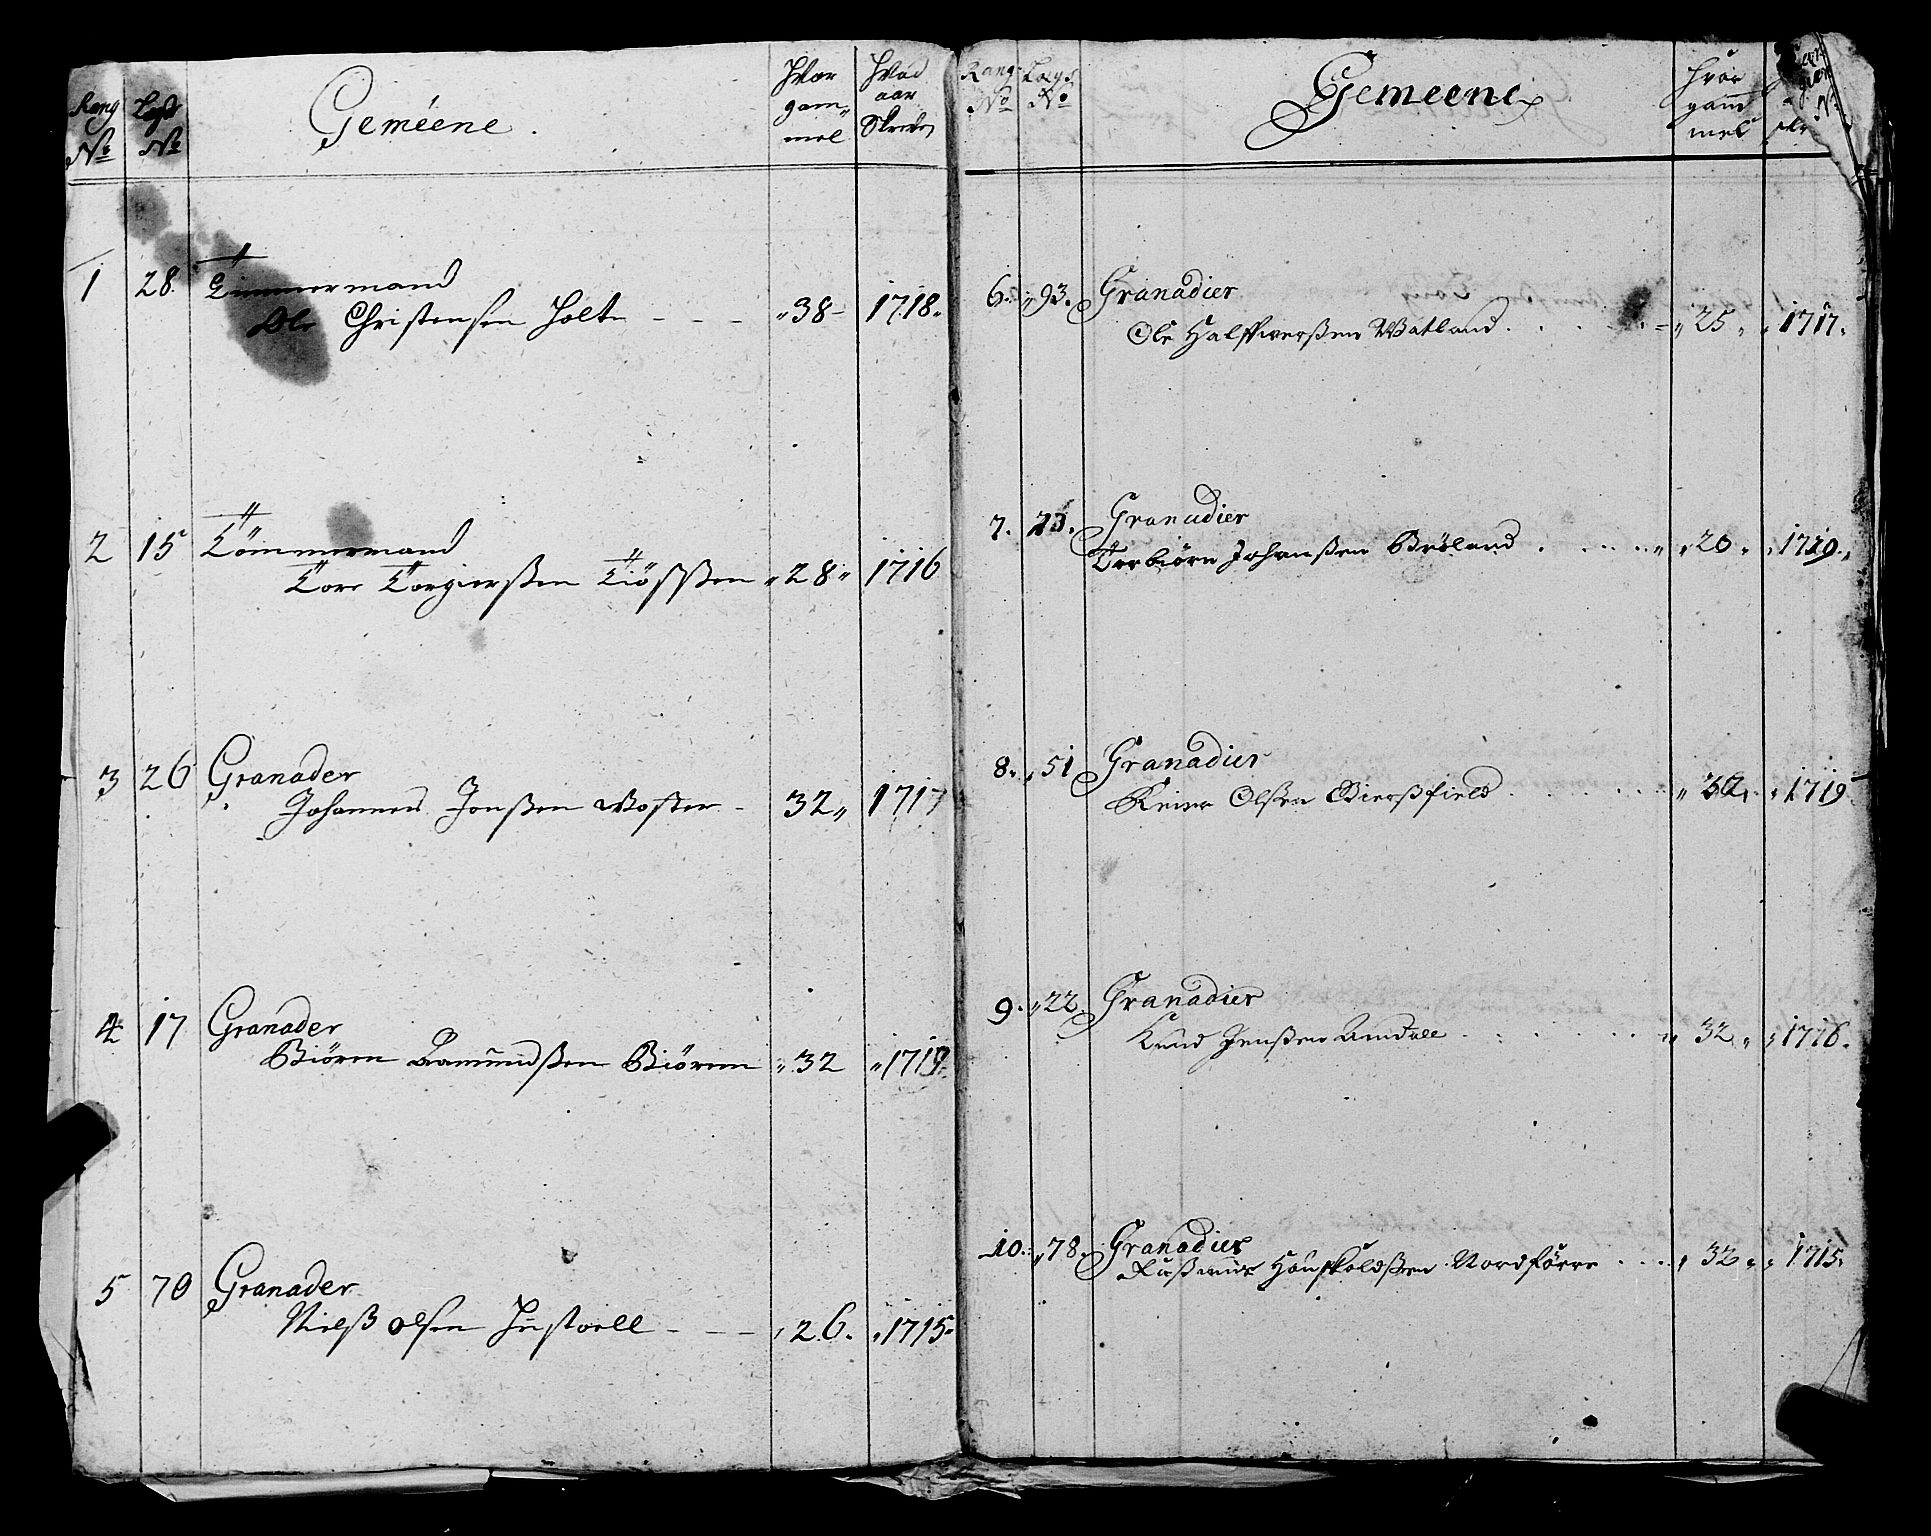 Rang
No
Lægd
No
Gemeene.
Hvor
gam„
mel
Hvad
aar
1 28. Timmermand
Ole Christensen Holte - - - „38- 1718„
2 15 Tömmermand
Tore Torgierßen „28„ 1716
3 26 Granader
Johannes Jonßen - 32„ 1717
4 17 Granader
Biörn Aamundßen Biörnn „32 „1719.
5 70 Granader
Nielß olsen - - - „26. „1715.
Rang
No
Lægds
No
Gemeene
Hvor
gam
mel
6. „93. Granadier
Ole Halffwerßen Watland. „25„ „1717.
7. 23. Granadier
Torbiörn Johanßen Bröland „20„ „1719.„
8. „51 Granadier
Reier Olßen Bierßfield „32„ „1719
9. „22. Granadier
Knud Jenßen Amdall „32„ „1716.
10. „78. Granadier
Raßmus Hauskoldßen Nordförre „32„ „1715.